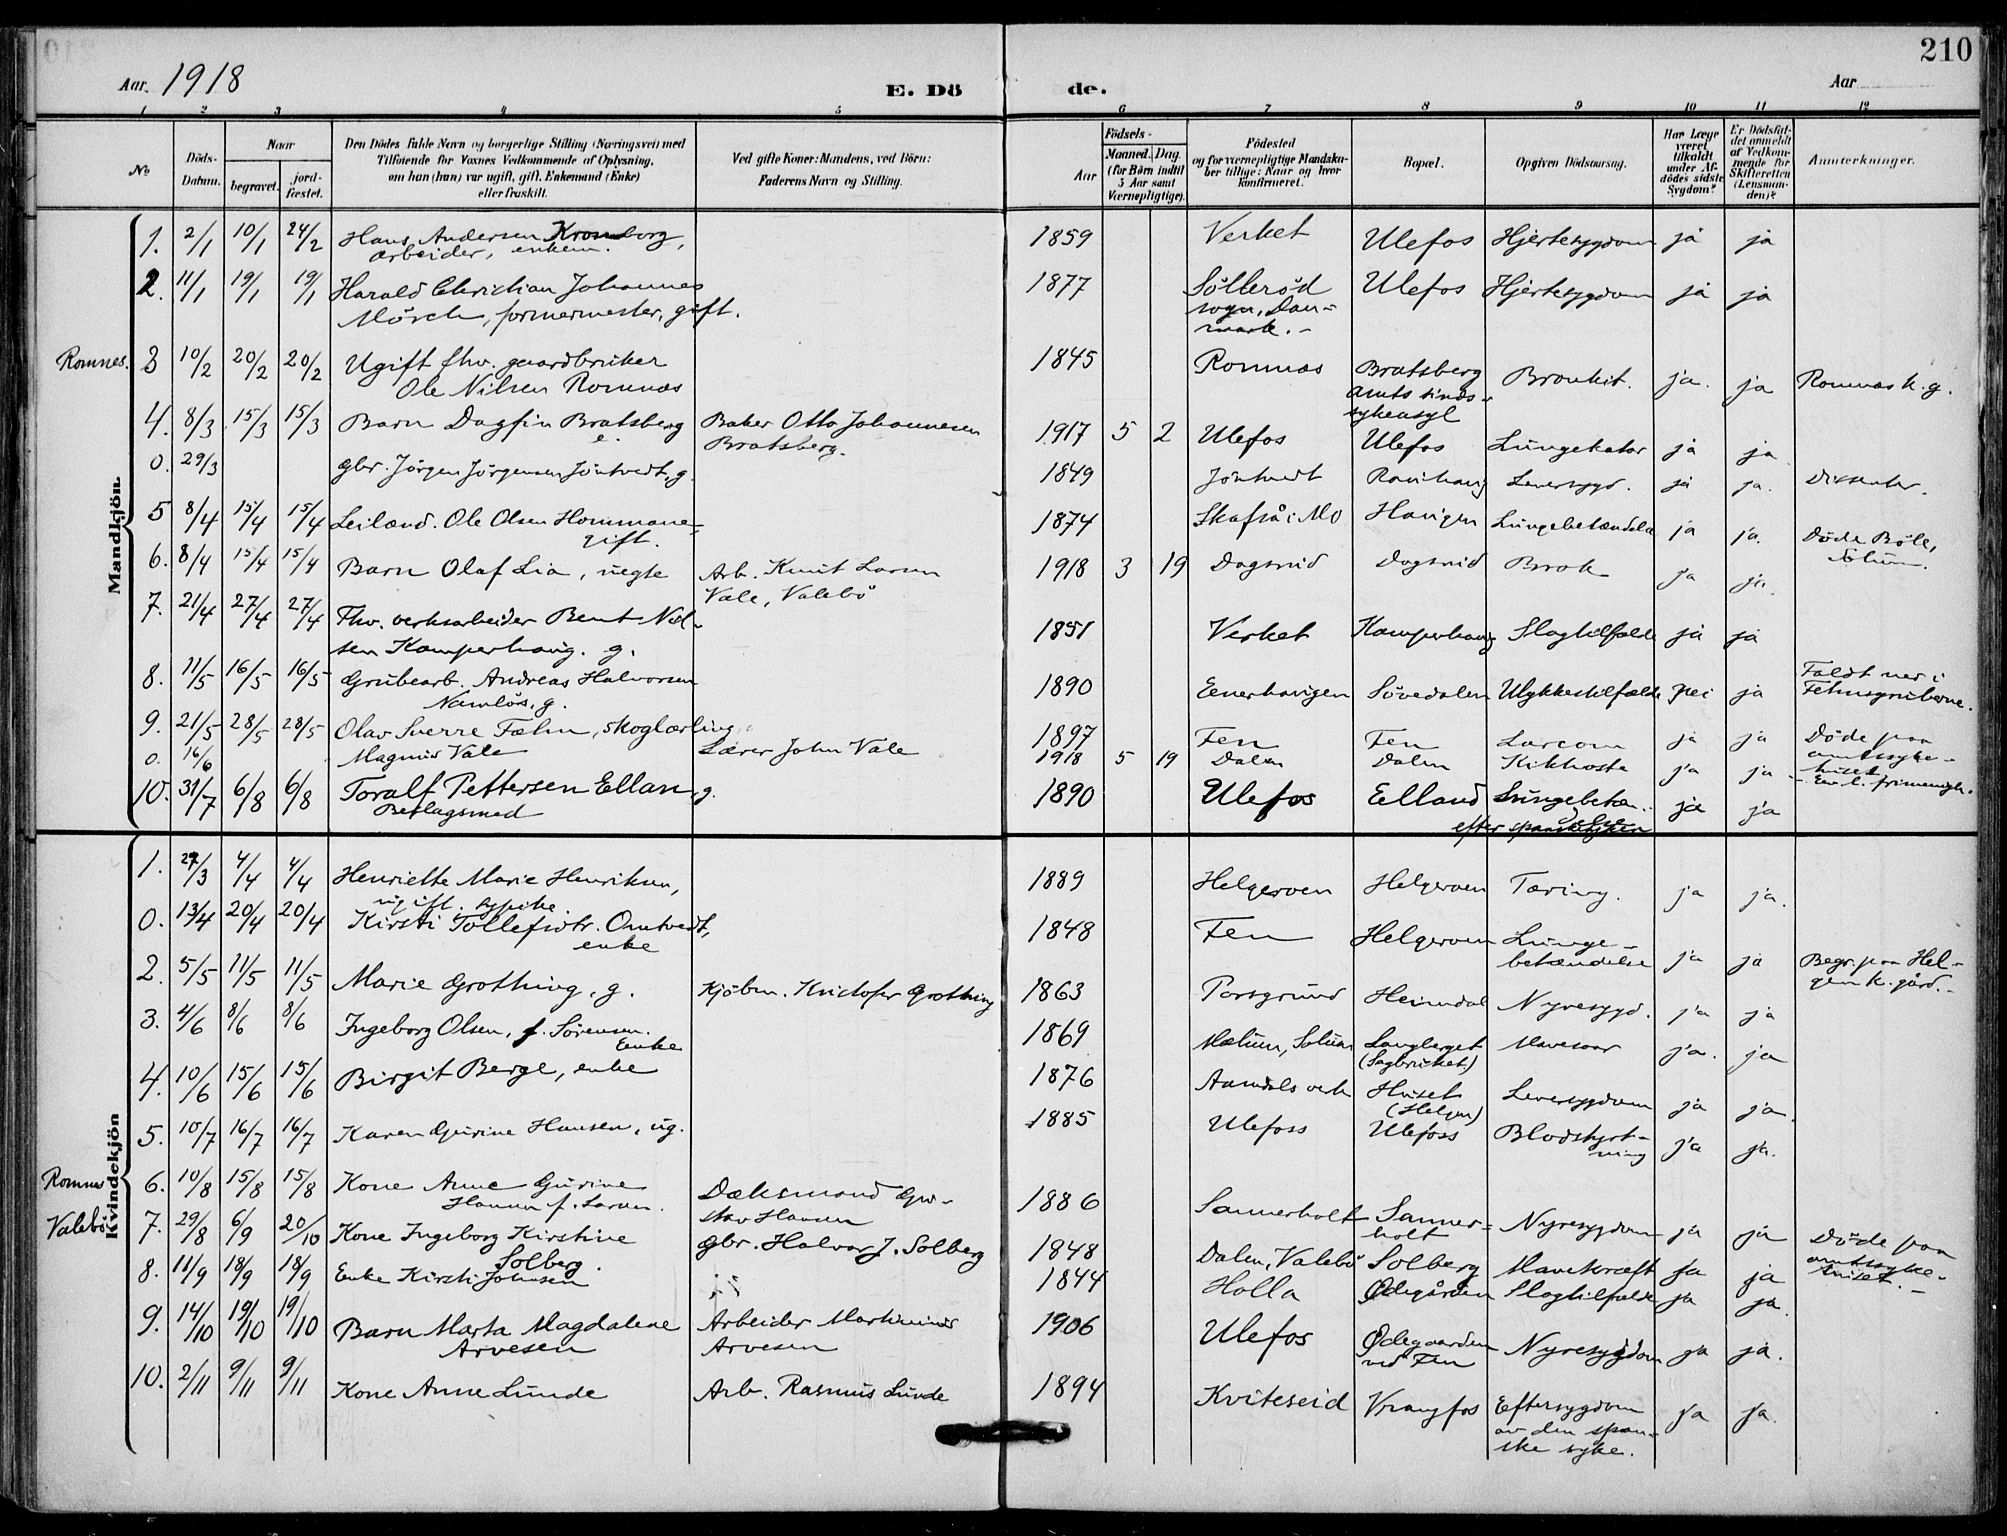 210
Aar. 1918
E. Dö de.
Aar
1 2 3 4 5 6 7 8 9 10 11 12
No
Döds-Datum.
Naar
begravet.
jordfæstet.
Den Dödes fulde Navn og borgerlige Stilling (Næringsvei) med
Tilföiende for Voxnes Vedkommende af Oplysning,
om han (hun) var ugift, gift, Enkemand (Enke)
eller fraskilt.
Ved gifte Koner: Mandens, ved Börn:
Faderens Navn og Stilling.
Födsels-
Aar
Maaned. Dag.
(for Börn indtil
5 Aar samt
Værnepligtige).
Födested
og for værnepligtige Mandska-
ber tillige: Naar og hvor
konfirmeret.
Bopæl.
Opgiven Dödsaarsag.
Har Læge
været
tilkaldt
under Af-
dödes sidste
Sygdom?
Er Dödsfal-
det anmeldt
af Vedkom-
mende for
Skifteretten
(Lensman-
den)?
Anmærkninger.
Mandkjön.
1. 2/1 10/1 24/2 Hans Andersen Kromborg, 1859 Verket Ulefos Hjertesygdom ja ja
arbeider, enkem.
2. 11/1 19/1 19/1 Harald Christian Johannes 1877 Sölleröd Ulefos Hjertesygdom ja ja
Mörch, formermester, gift. sogn, Dan-
mark.-
Romnes. 3 10/2 20/2 20/2 Ugift fhv. gaardbruker 1845 Romnas Bratsberg Bronkit. ja. ja Romnas k.g.
Ole Nilsen Romnas amts sinds-
sykeasyl
4. 8/3 15/3 15/3 Barn Dagfin Bratsberg Baker Otto Johannesen 1917 5 2 Ulefos Ulefos Lungekatar ja ja
Bratsberg.
0. 29/3 gbr. Jörgen Jörgensen Jöntvedt, g. 1849 Jöntvedt Leversygd. ja ja. Dissenter.
5 8/4 15/4 15/4 Leilænd. Ole Olsen Hommane, 1874 Skafså i Mo Haugen Lungebetændelse ja ja. Döde Böle,
gift. Solum.
6. 8/4 15/4 15/4 Barn Olaf Lia, uegte Arb. Knut Larsen 1918 3 19 Dagsrud Dagsrud Brok ja ja.
Vale, Valebö
7. 21/4 27/4 27/4 Fhv. verksarbeider Bent Niel- 1851 Verket Kamperhaug Slagtilfælde ja ja
sen Kamperhaug. g.
8. 11/5 16/5 16/5 Grubearb. Andreas Halvorsen 1890 Eenerhaugen Sövedalen Ulykkestilfælde Nei ja Faldt ner i
Namlös, g. Fehnsgruberne.
9. 21/5 28/5 28/5 Olav Sverre Fæhn, skoglærling 1897 Fen Fen Sarcom ja ja Döde paa
amtssyke-
huset
0. 16/6 Magnus Vale Lærer John Vale 1918 5 19 Dalen Dalen Kikhoste ja ja - Ev. l. frimenigh.
10. 31/7 6/8 6/8 Toralf Pettersen Ellan, g. 1890 Ulefos Elland Lungebetæn- ja ja
Beslagsmed delse
efter spansksyken
Kvindekjön
1. 27/3 4/4 4/4 Henriette Marie Henriksen, 1889 Helgeroen Helgeroen Tæring. ja ja.
ugift. sypike
0. 13/4 20/4 20/4 Kirsti Tollefsdtr. Omtvedt, 1848 Fen Helgeroen Lunge- ja ja Begr. paa Hel-
enke betændelse gen k. gård.-
2. 5/5 11/5 11/5 Marie Grothing, g. Kjöbm. Kristofer Grothing 1863 Porsgrund Heimdal Nyresygd. ja ja
3. 4/6 8/6 8/6 Ingeborg Olsen, f. Sørensen. 1869 Mælum, Solum Langberget Mavesaar ja. ja
Enke (Sagbruket)
4. 10/6 15/6 15/6 Birgit Berge, enke 1876 Aamdals verk Huset Leversygdom ja ja.
(Helgen)
5. 10/7 16/7 16/7 Karen Gurine Hansen, ug. 1885 Ulefoss Ulefoss Blodstyrt- ja ja.
ning
Romnes 6. 10/8 15/8 15/8 Kone Anne Gurine Dæksmand Gu- 1886 Sannerholt Sanner- Nyresygdom ja ja
Hansen f. Larsen. stav Hansen holt
Valebö 7. 29/8 6/9 20/10 Kone Ingeborg Kirstine gbr. Halvor J. Solberg 1848 Dalen, Valebö Solberg Mavekræft ja ja Döde paa
Solberg. amtssyke-
huset.-
8. 11/9 18/9 18/9 Enke Kirsti Johnsen 1844 Holla Ødegården Slagtilfælde ja ja.
9. 14/10 19/10 19/10 Barn Marta Magdalene Arbeider Martinius 1906 Ulefos Ødegaarden Nyresygdom ja ja.
Arvesen Arvesen ved Fen
10. 2/11 9/11 9/11 Kone Anne Lunde Arb. Rasmus Lunde 1894 Kviteseid Vrangfos Eftersygdom ja ja.
av den span-
ske syke.